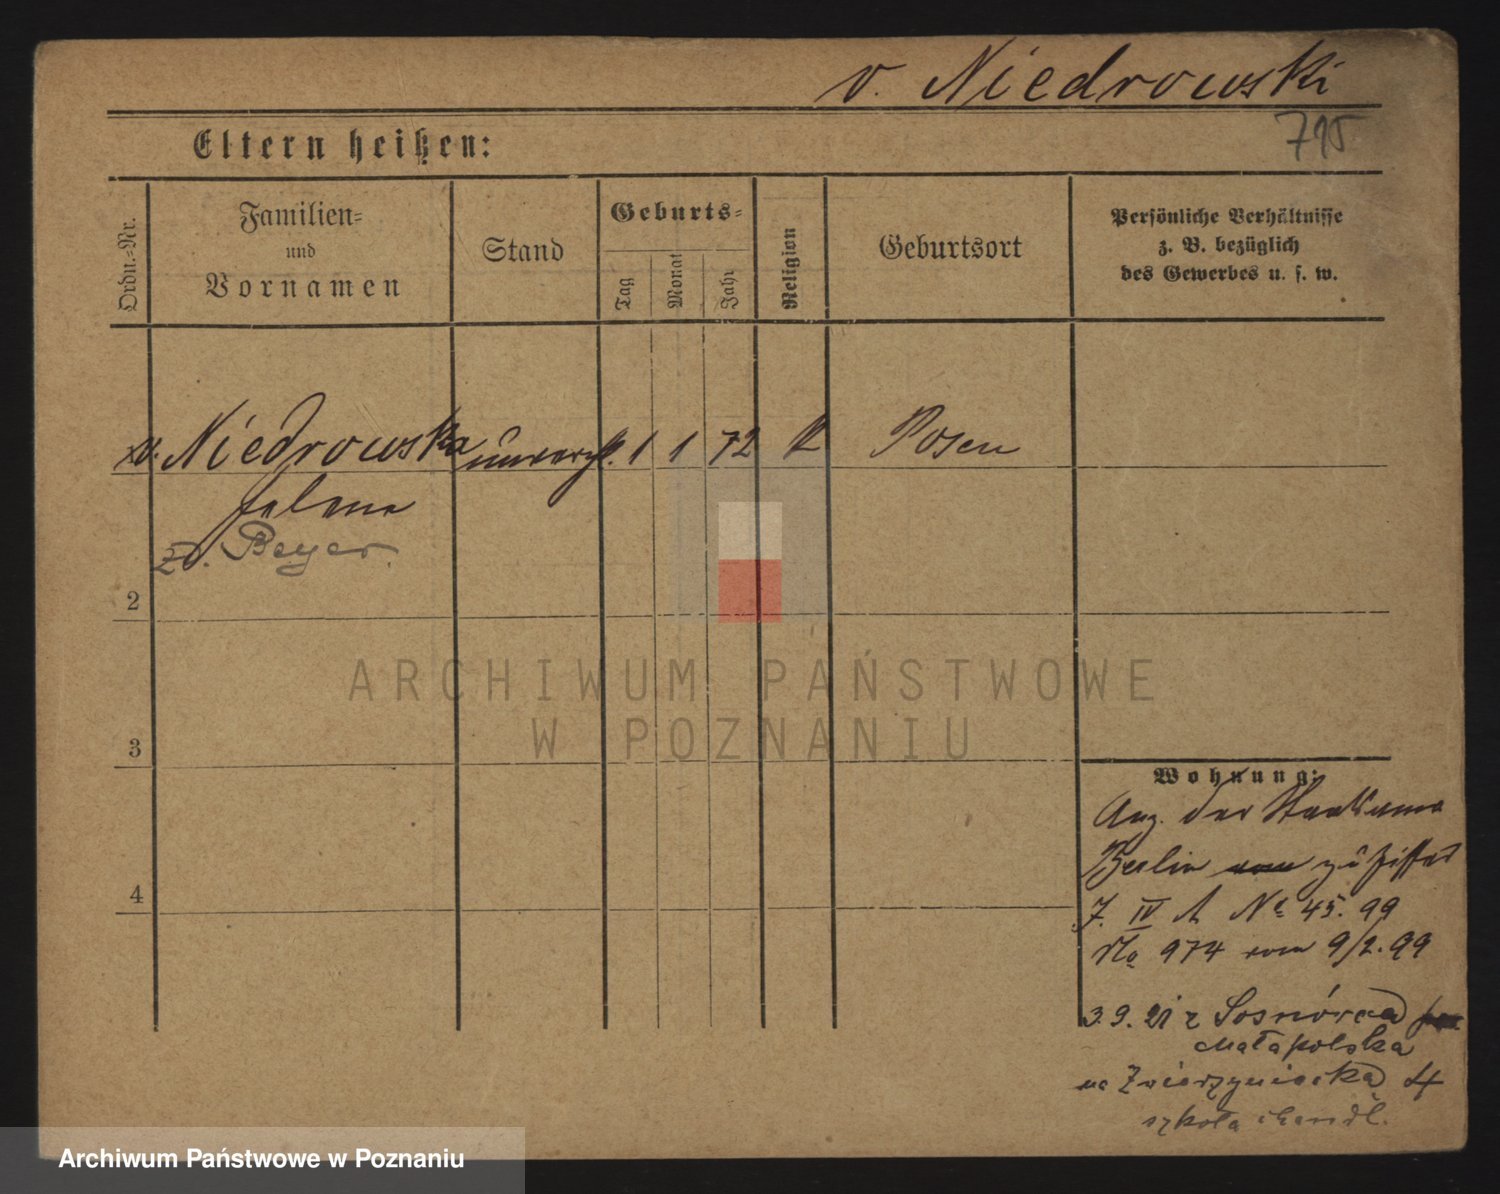 v. Niedrowski
715
Eltern heißen:
Ordn.-Nr.
Familien-
und
Vornamen
Stand
Geburts-
Tag
Monat
Jahr
Religion
Geburtsort
Persönliche Verhältnisse
z. B. bezüglich
des Gewerbes u. s. w.
v. Niedrowska
unvereh. 1 1 72 K Posen
Helene
Beyer.
2
3
4
ARCHIWUM PAŃSTWOWE
W POZNANIU
Wohnung:
Ang. der
Berlin zu Ziffer
J. IV A No 45. 99
No 974 vom 9/2. 99
3.9.21 z
Małapolska
na Zwierzyniecka 4
szkoła handl.
Archiwum Państwowe w Poznaniu